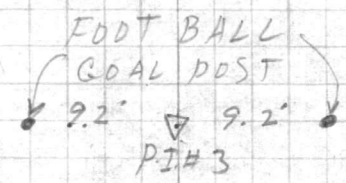 FOOT BALL
GOAL POST
9.2' 9.2'
P.I.#3